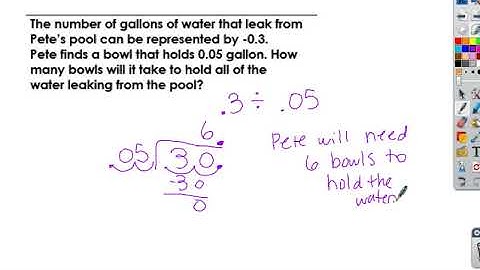 The number of gallons of water that leak from
Pete's pool can be represented by -0.3.
Pete finds a bowl that holds 0.05 gallon. How
many bowls will it take to hold all of the
water leaking from the pool?
.3 ÷ .05
6.
.05 3 0.
-3 0
0
Pete will need
6 bowls to
hold the
water.